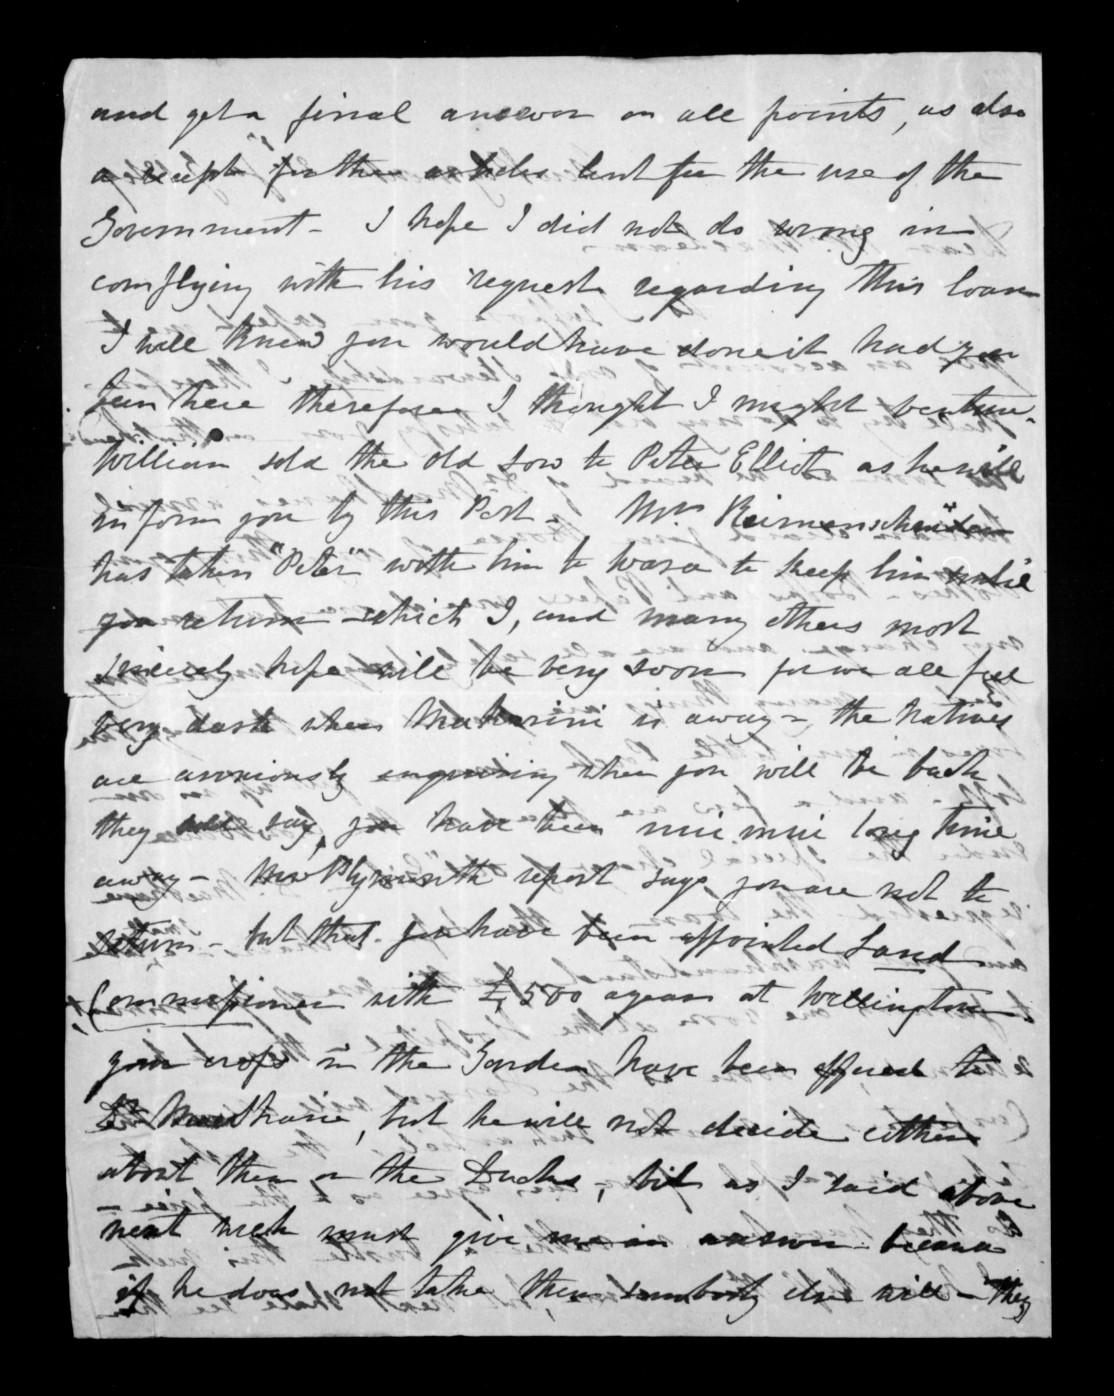 and get a final answer on all points, as also
a receipt for the articles lent for the use of the
Government - I hope I did not do wrong in
complying with his request regarding this loan
I well knew you would have done it had you
been here therefore I thought I might venture.
William sold the old sow to Peter Elliot as he will
inform you by this Post - Mr Reimenschneider
has taken "Peter" with him to Warea to keep him until
you return - which I, and many others most
sincerely hope will be very soon for we all feel
very dark when Makarini is away - the Natives
are anxiously enquiring when you will be back
they all say, you have been nui nui long time
away - New Plymouth report says you are not to
return - but that you have been appointed Land
Commissioner with £500 a year at Wellington.
your crops in the Garden have been offered to
Dr , but he will not decide either
about them or the Ducks, but as I said above
next week must give me an answer because
if he does not take them, somebody else will - they